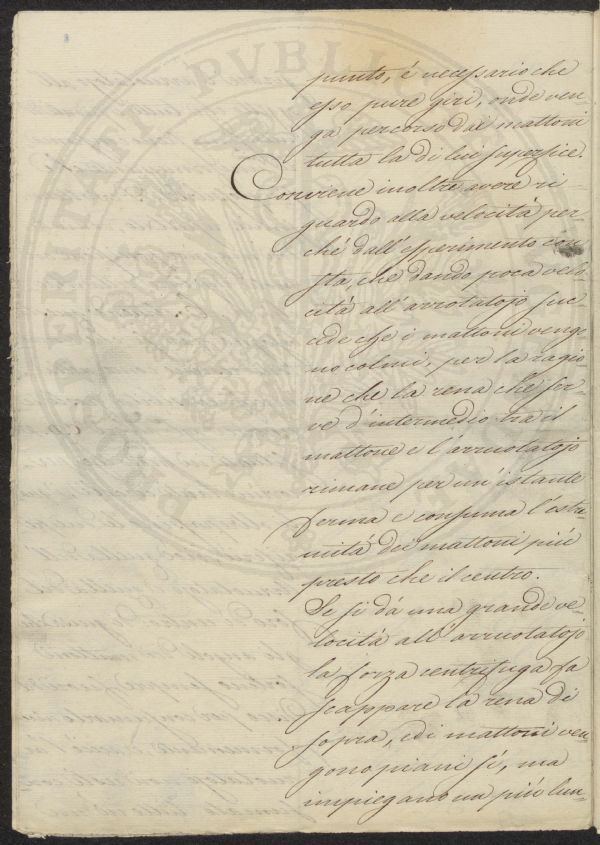 punto, é necessario che
esso pure giri, onde ven-
ga percorso dai mattoni
tutta la di lui superfice.
Conviene inoltre avere ri
guardo alla velocità per-
ché dall'esperimento con
sta, che dando poca velo-
cità all'arrotatojo suc-
cede che i mattoni vengo
no colmi, per la ragio
ne che la rena che ser-
ve d'intermedio tra il
mattone e l'arruotatojo
rimane per un'istante
ferma e consuma l'estre
mità dei mattoni più
presto che il centro.
Se si dà una grande ve-
locità all'arruotatojo
la forza centrifuga fa
scappare la rena di
sopra, ed i mattoni ven
gono piani sì, ma
impiegano un più lun-
PROSPERITATI PVBLICAE